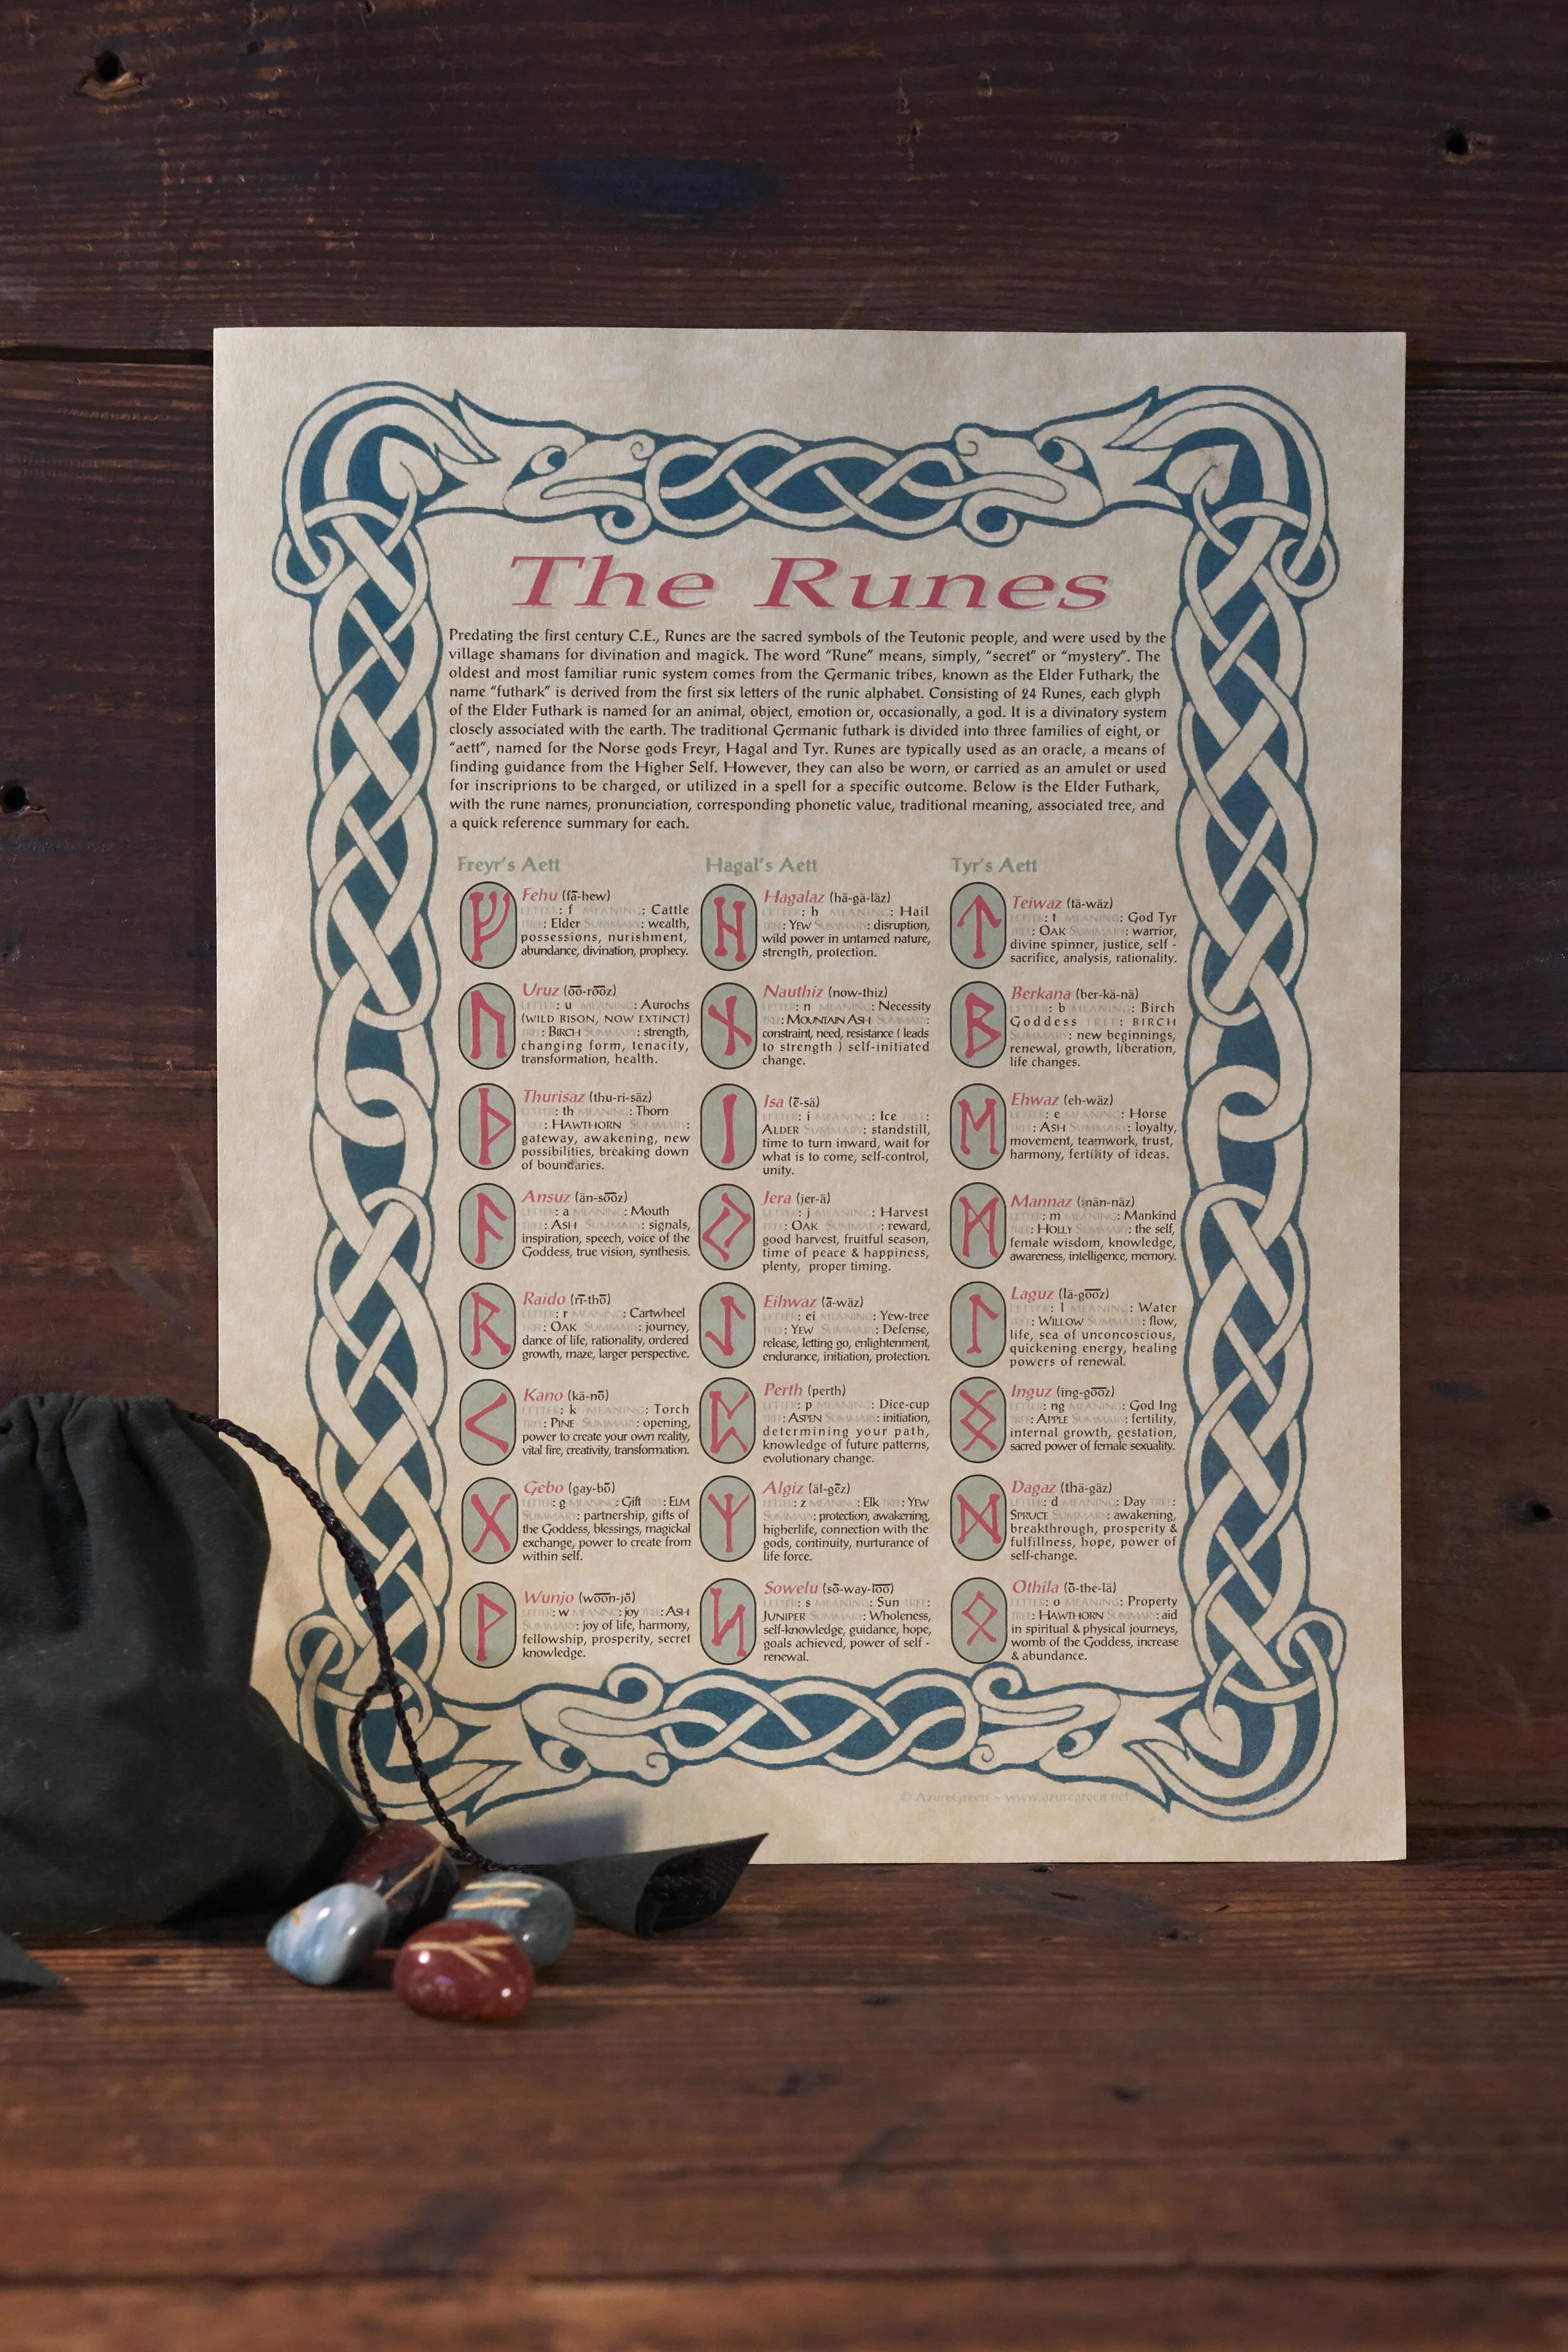 The Runes
Predating the first century C.E., Runes are the sacred symbols of the Teutonic people, and were used by the
village shamans for divination and magick. The word “Rune” means, simply, “secret” or “mystery”. The
oldest and most familiar runic system comes from the Germanic tribes, known as the Elder Futhark; the
name “futhark” is derived from the first six letters of the runic alphabet. Consisting of 24 Runes, each glyph
of the Elder Futhark is named for an animal, object, emotion or, occasionally, a god. It is a divinatory system
closely associated with the earth. The traditional Germanic futhark is divided into three families of eight, or
“aett”, named for the Norse gods Freyr, Hagal and Tyr. Runes are typically used as an oracle, a means of
finding guidance from the Higher Self. However, they can also be worn, or carried as an amulet or used
for inscriprions to be charged, or utilized in a spell for a specific outcome. Below is the Elder Futhark,
with the rune names, pronunciation, corresponding phonetic value, traditional meaning, associated tree, and
a quick reference summary for each.
Freyr's Aett
Fehu (fā-hew)
LETTER: f MEANING: Cattle
TREE: Elder SUMMARY: wealth,
possessions, nurishment,
abundance, divination, prophecy.
Uruz (o͞o-ro͞oz)
LETTER: u MEANING: Aurochs
(WILD BISON, NOW EXTINCT)
TREE: BIRCH SUMMARY: strength,
changing form, tenacity,
transformation, health.
Thurisaz (thu-ri-säz)
LETTER: th MEANING: Thorn
TREE: HAWTHORN SUMMARY:
gateway, awakening, new
possibilities, breaking down
of boundaries.
Ansuz (än-so͞oz)
LETTER: a MEANING: Mouth
TREE: ASH SUMMARY: signals,
inspiration, speech, voice of the
Goddess, true vision, synthesis.
Raido (rī-thō)
LETTER: r MEANING: Cartwheel
TREE: OAK SUMMARY: journey,
dance of life, rationality, ordered
growth, maze, larger perspective.
Kano (kä-nō)
LETTER: k MEANING: Torch
TREE: PINE SUMMARY: opening,
power to create your own reality,
vital fire, creativity, transformation.
Gebo (gay-bō)
LETTER: g MEANING: Gift TREE: ELM
SUMMARY: partnership, gifts of
the Goddess, blessings, magickal
exchange, power to create from
within self.
Wunjo (wo͞on-jō)
LETTER: w MEANING: joy TREE: ASH
SUMMARY: joy of life, harmony,
fellowship, prosperity, secret
knowledge.
Hagal's Aett
Hagalaz (hä-gä-läz)
LETTER: h MEANING: Hail
TREE: YEW SUMMARY: disruption,
wild power in untamed nature,
strength, protection.
Nauthiz (now-thiz)
LETTER: n MEANING: Necessity
TREE: MOUNTAIN ASH SUMMARY:
constraint, need, resistance ( leads
to strength ) self-initiated
change.
Isa (ē-sä)
LETTER: i MEANING: Ice TREE:
ALDER SUMMARY: standstill,
time to turn inward, wait for
what is to come, self-control,
unity.
Jera (jer-ä)
LETTER: j MEANING: Harvest
TREE: OAK SUMMARY: reward,
good harvest, fruitful season,
time of peace & happiness,
plenty, proper timing.
Eihwaz (ā-wäz)
LETTER: ei MEANING: Yew-tree
TREE: YEW SUMMARY: Defense,
release, letting go, enlightenment,
endurance, initiation, protection.
Perth (perth)
LETTER: p MEANING: Dice-cup
TREE: ASPEN SUMMARY: initiation,
determining your path,
knowledge of future patterns,
evolutionary change.
Algiz (äl-gēz)
LETTER: z MEANING: Elk TREE: YEW
SUMMARY: protection, awakening,
higherlife, connection with the
gods, continuity, nurturance of
life force.
Sowelu (sō-way-lo͞o)
LETTER: s MEANING: Sun TREE:
JUNIPER SUMMARY: Wholeness,
self-knowledge, guidance, hope,
goals achieved, power of self -
renewal.
Tyr's Aett
Teiwaz (tä-wäz)
LETTER: t MEANING: God Tyr
TREE: OAK SUMMARY: warrior,
divine spinner, justice, self -
sacrifice, analysis, rationality.
Berkana (ber-kä-nä)
LETTER: b MEANING: Birch
Goddess TREE: BIRCH
SUMMARY: new beginnings,
renewal, growth, liberation,
life changes.
Ehwaz (eh-wäz)
LETTER: e MEANING: Horse
TREE: ASH SUMMARY: loyalty,
movement, teamwork, trust,
harmony, fertility of ideas.
Mannaz (män-näz)
LETTER: m MEANING: Mankind
TREE: HOLLY SUMMARY: the self,
female wisdom, knowledge,
awareness, intelligence, memory.
Laguz (lä-go͞oz)
LETTER: l MEANING: Water
TREE: WILLOW SUMMARY: flow,
life, sea of unconcoscious,
quickening energy, healing
powers of renewal.
Inguz (ing-go͞oz)
LETTER: ng MEANING: God Ing
TREE: APPLE SUMMARY: fertility,
internal growth, gestation,
sacred power of female sexuality.
Dagaz (thä-gäz)
LETTER: d MEANING: Day TREE:
SPRUCE SUMMARY: awakening,
breakthrough, prosperity &
fulfillness, hope, power of
self-change.
Othila (ō-the-lä)
LETTER: o MEANING: Property
TREE: HAWTHORN SUMMARY: aid
in spiritual & physical journeys,
womb of the Goddess, increase
& abundance.
© AzureGreen ~ www.azuregreen.net